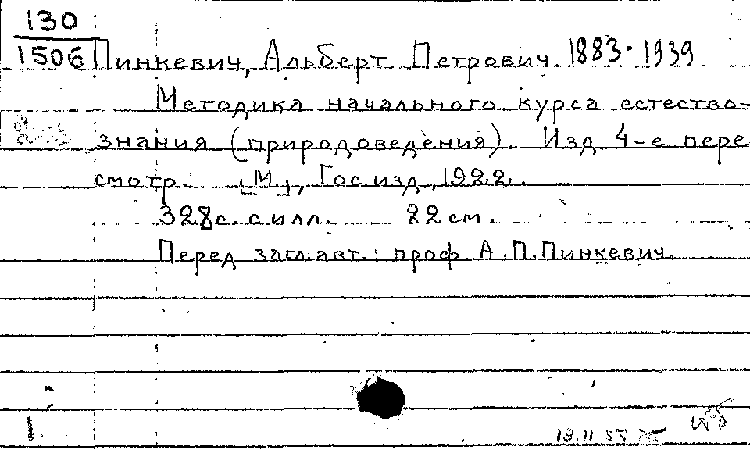 130
1506 Пинкевич, Альберт Петрович. 1883-1939
Методика начального курса естество-
знания (природоведения). Изд 4-е пере
смотр. [М], Госиздд, 1922.
328с. с илл. 22 см.
Перед загл. авт.: проф А.П.Пинкевич.
1.